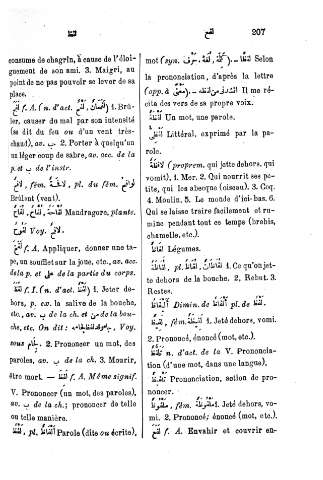 لفظ
لفح
207
consume de chagrin, à cause de l'éloi-
gnement de son ami. 3. Maigri, au
point de ne pas pouvoir se lever de sa
place.
f. A. (n. d'act. لَفْح, لَفَحَان) 1. Brû-
ler, causer du mal par son intensité
(se dit du feu ou d'un vent très-
chaud), av. ب 2. Porter à quelqu'un
un léger coup de sabre, av. acc. de la
p. et ب de l'instr.
لَافِح, fém. لَافِحَة, pl. du fém. لَوَافِح
Brûlent (vent).
لُفَّاح Mandragore, plante.
Voy.
f. A. Appliquer, donner une ta-
pe, un soufflet sur la joue, etc., av. acc.
de la p. et على de la partie du corps.
لَفَظَ f. I. (n. d'act. لَفْظ) 1. Jeter de-
hors, p. ex. la salive de la bouche,
etc., av. ب de la ch. et من de la bou-
che, etc. On dit : Voy.
sous 2. Prononcer un mot, des
paroles, av. ب de la ch. 3. Mourir,
être mort. — لَفِظَ f. A. Même signif.
V. Prononcer (un mot, des paroles),
av. ب de la ch.; prononcer de telle
ou telle manière.
لَفْظ, pl. أَلْفَاظ Parole (dite ou écrite),
mot (syn. كَلِمَة, لُغَة, حَرْف). — لَفْظًا Selon
la prononciation, d'après la lettre
(opp. à مَعْنًى). — Il me ré-
cita des vers de sa propre voix.
لَفْظَة Un mot, une parole.
لَفْظِيّ Littéral, exprimé par la pa-
role.
لَافِظَة (proprem. qui jette dehors, qui
vomit). 1. Mer. 2. Qui nourrit ses pe-
tits, qui les abecque (oiseau). 3. Coq.
4. Moulin. 5. Le monde d'ici-bas. 6.
Qui se laisse traire facilement et ru-
mine pendant tout ce temps (brebis,
chamelle, etc.).
Légumes.
لُفَاظَة, pl. لُفَاظَات 1. Ce qu'on jet-
te dehors de la bouche. 2. Rebut. 3.
Restes.
Dimin. de أَلْفَاظ pl. de لَفْظ.
لَفِيظ, fém. لَفِيظَة 1. Jeté dehors, vomi.
2. Prononcé, énoncé (mot, etc.).
تَلَفُّظ n. d'act. de la V. Prononcia-
tion (d'une mot, dans une langue).
Prononciation, action de pro-
noncer.
مَلْفُوظ, fém. مَلْفُوظَة 1. Jeté dehors, vomi.
2. Prononcé; énoncé (mot, etc.).
f. A. Envahir et couvrir en-